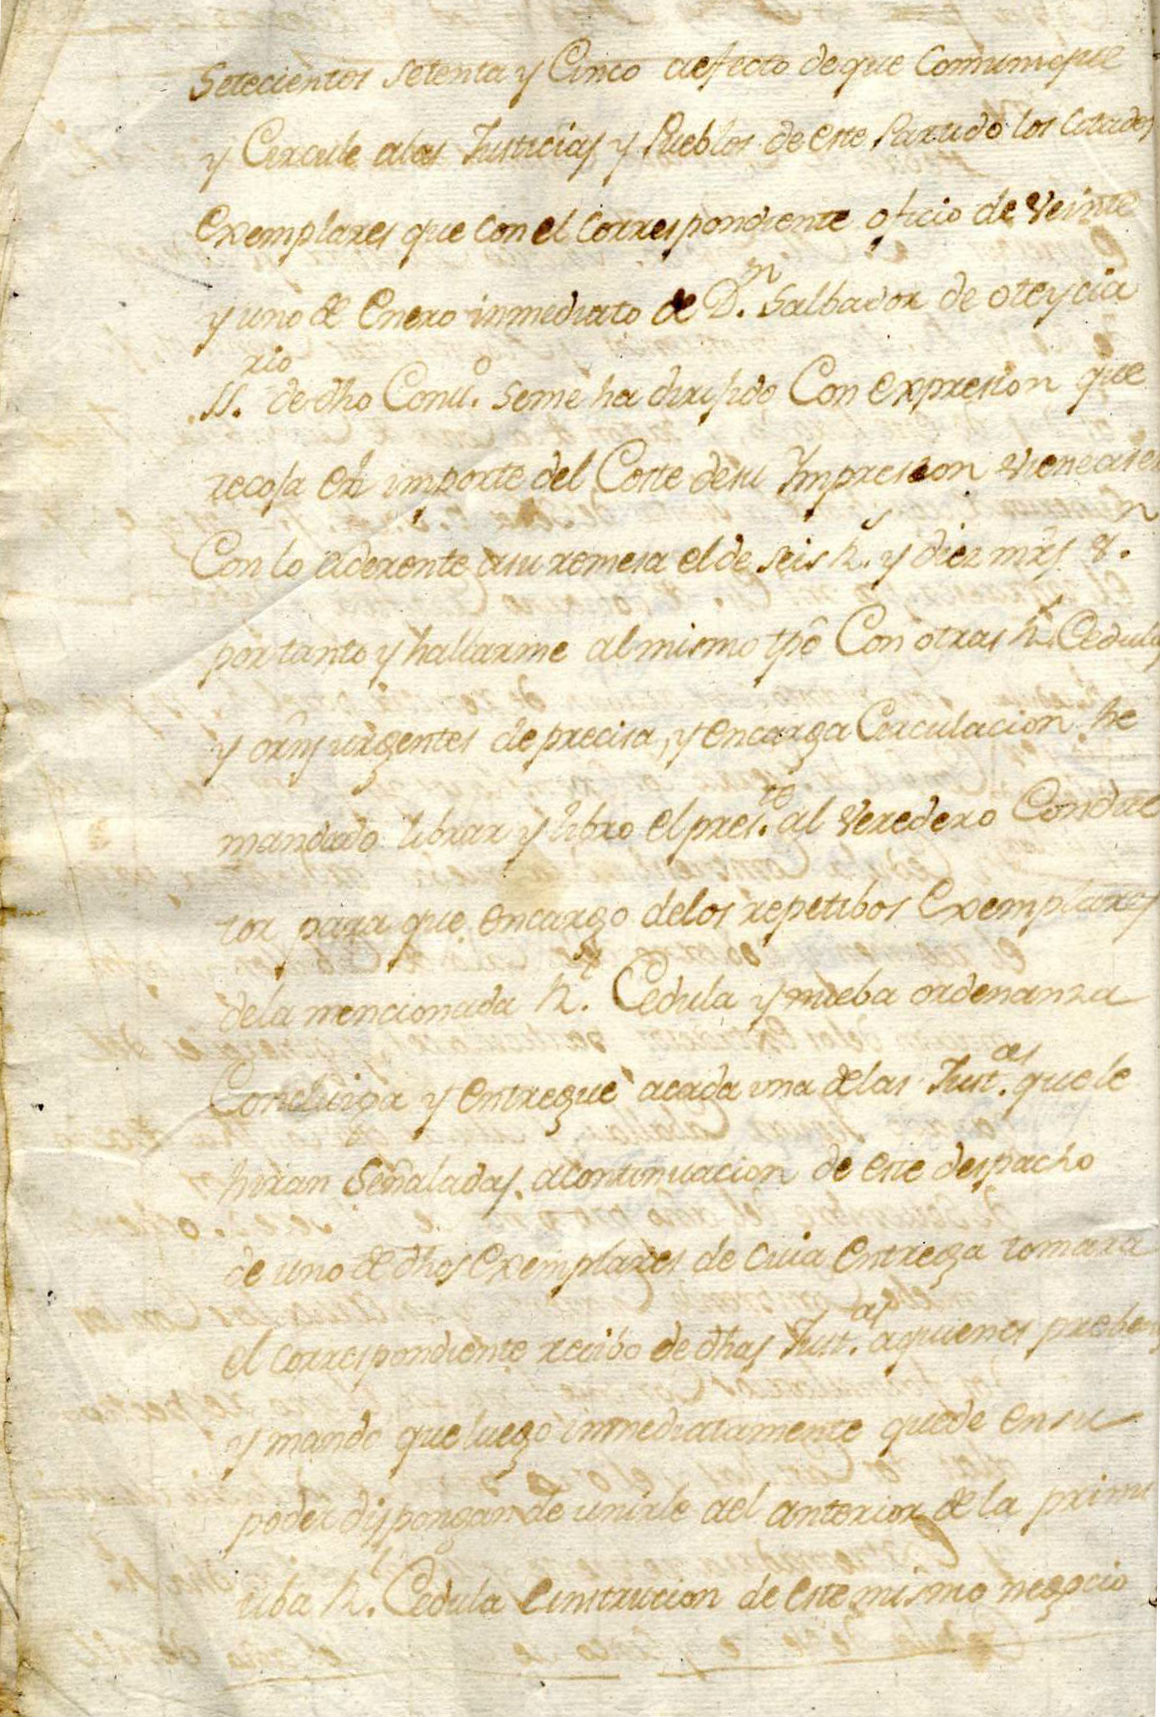 Setecientos setenta y Cinco aefecto de que Comunique
y Circule alas Justicias y Pueblos de este Partido los Citados
Exemplares que con el correspondiente oficio de Veinte
y uno de Enero inmediato de D.n Salbador de oteycia
SS.rio de dho Conv.o seme ha dirifido Con expresion que
recoja el importe del Coste desu Impresion viene a ser
Con lo aderente asu remesa el de seis R.s y diez mrs V.n
portanto y hallarme al mismo tpô Con otras R.s Cedulas
y orns urgentes de precisa, y encarga Circulacion he
mandado librar y libro el pres.te al Veredero Conduc
tor para que encargo delos repetibos Exemplares
dela mencionada R.l Cedula y nueba ordenanza
Conduzga y entregue acada una delas Just.as que le
hiran Señaladas acontinuacion de este despacho
de uno de dhos Exemplares de cuia Entrega tomara
el correspondiente recibo de dhas Just.as aquienes preben
y mando que luego inmediatamente quede en su
poder dispongan de unirle ael anterior de la primi
tiba R.l Cedula einstrucion de este mismo negocio